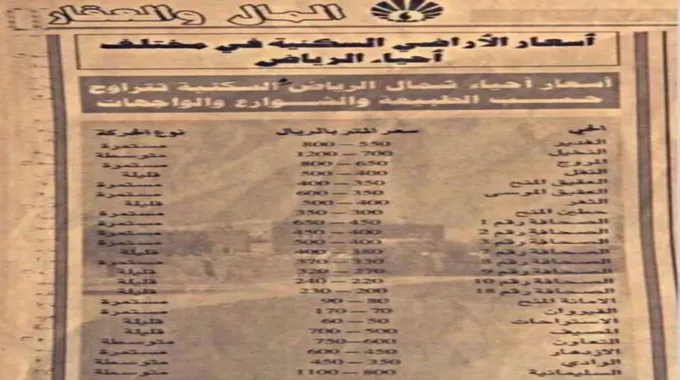 المال والعقار
أسعار الأراضي السكنية في مختلف
أحياء الرياض
أسعار أحياء شمال الرياض السكنية تتراوح
حسب الطبيعة والشوارع والواجهات
الحي سعر المتر بالريال نوع الحركة
الغدير 550 – 800 مستمرة
النخيل 700 – 1200 متوسطة
المروج 650 – 800 مستمرة
النفل 400 – 500 قليلة
العقيق المنح 350 – 400 مستمرة
العقيق المرسى 350 – 600 مستمرة
الثغر 400 – 500 قليلة
حطين المنح 300 – 350 مستمرة
الصحافة رقم 1 450 – 650 مستمرة
الصحافة رقم 2 400 – 450 مستمرة
الصحافة رقم 3 400 – 500 مستمرة
الصحافة رقم 380 – 400 قليلة
الصحافة رقم 330 – 370 مستمرة
الصحافة رقم 9 270 – 320 قليلة
الصحافة رقم 10 220 – 240 قليلة
الصحافة رقم 18 200 – 230 قليلة
الامانة المنح 80 – 90 مستمرة
القيروان 70 – 170 مستمرة
الاستراحات 50 – 60 قليلة
المصيف 500 – 700 قليلة
التعاون 600 – 750 متوسطة
الازدهار 450 – 600 مستمرة
الوادي 350 – 450 متوسطة
السليمانية 800 – 1100 متوسطة